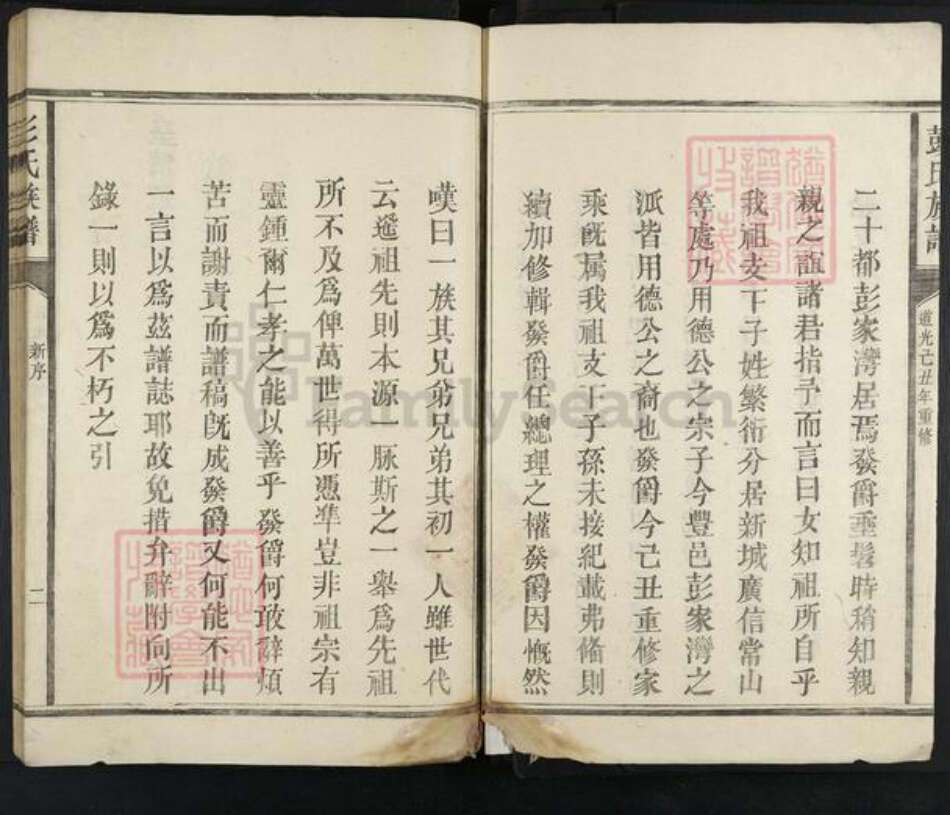 彭氏族譜
道光己丑年重修
二十都彭家灣居焉發爵垂髫時稍知親
親之誼諸君指予而言曰女知祖所自乎
我祖支下子姓繁衍分居新城廣信常山
等處乃用德公之宗子今豐邑彭家灣之
派皆用德公之裔也發爵今己丑重修家
乘既属我祖支下子孫未接紀載弗偹則
續加修輯發爵任總理之權發爵因慨然
嘆曰一族其兄弟兄弟其初一人雖世代
云遥祖先則本源一脉斯之一舉爲先祖
所不及爲俾萬世得所憑準豈非祖宗有
靈鍾爾仁孝之能以善乎發爵何敢辭煩
苦而謝責而譜稿既成發爵又何能不出
一言以爲茲譜誌耶故免措弁辭附向所
錄一則以爲不朽之引
彭氏族譜
新序
二
FamilySearch